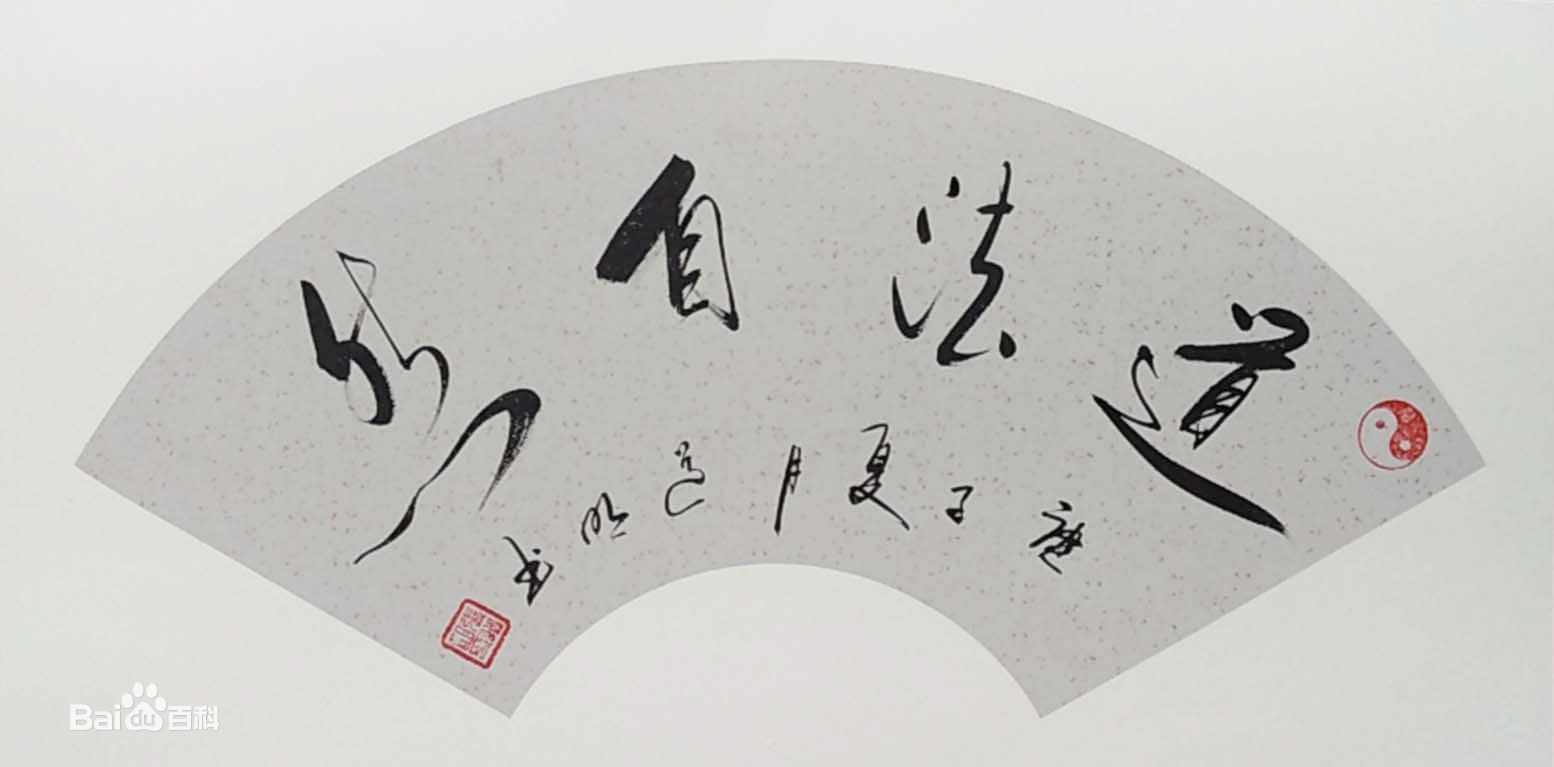 道法自然
庚子夏月道明书
Baidu百科